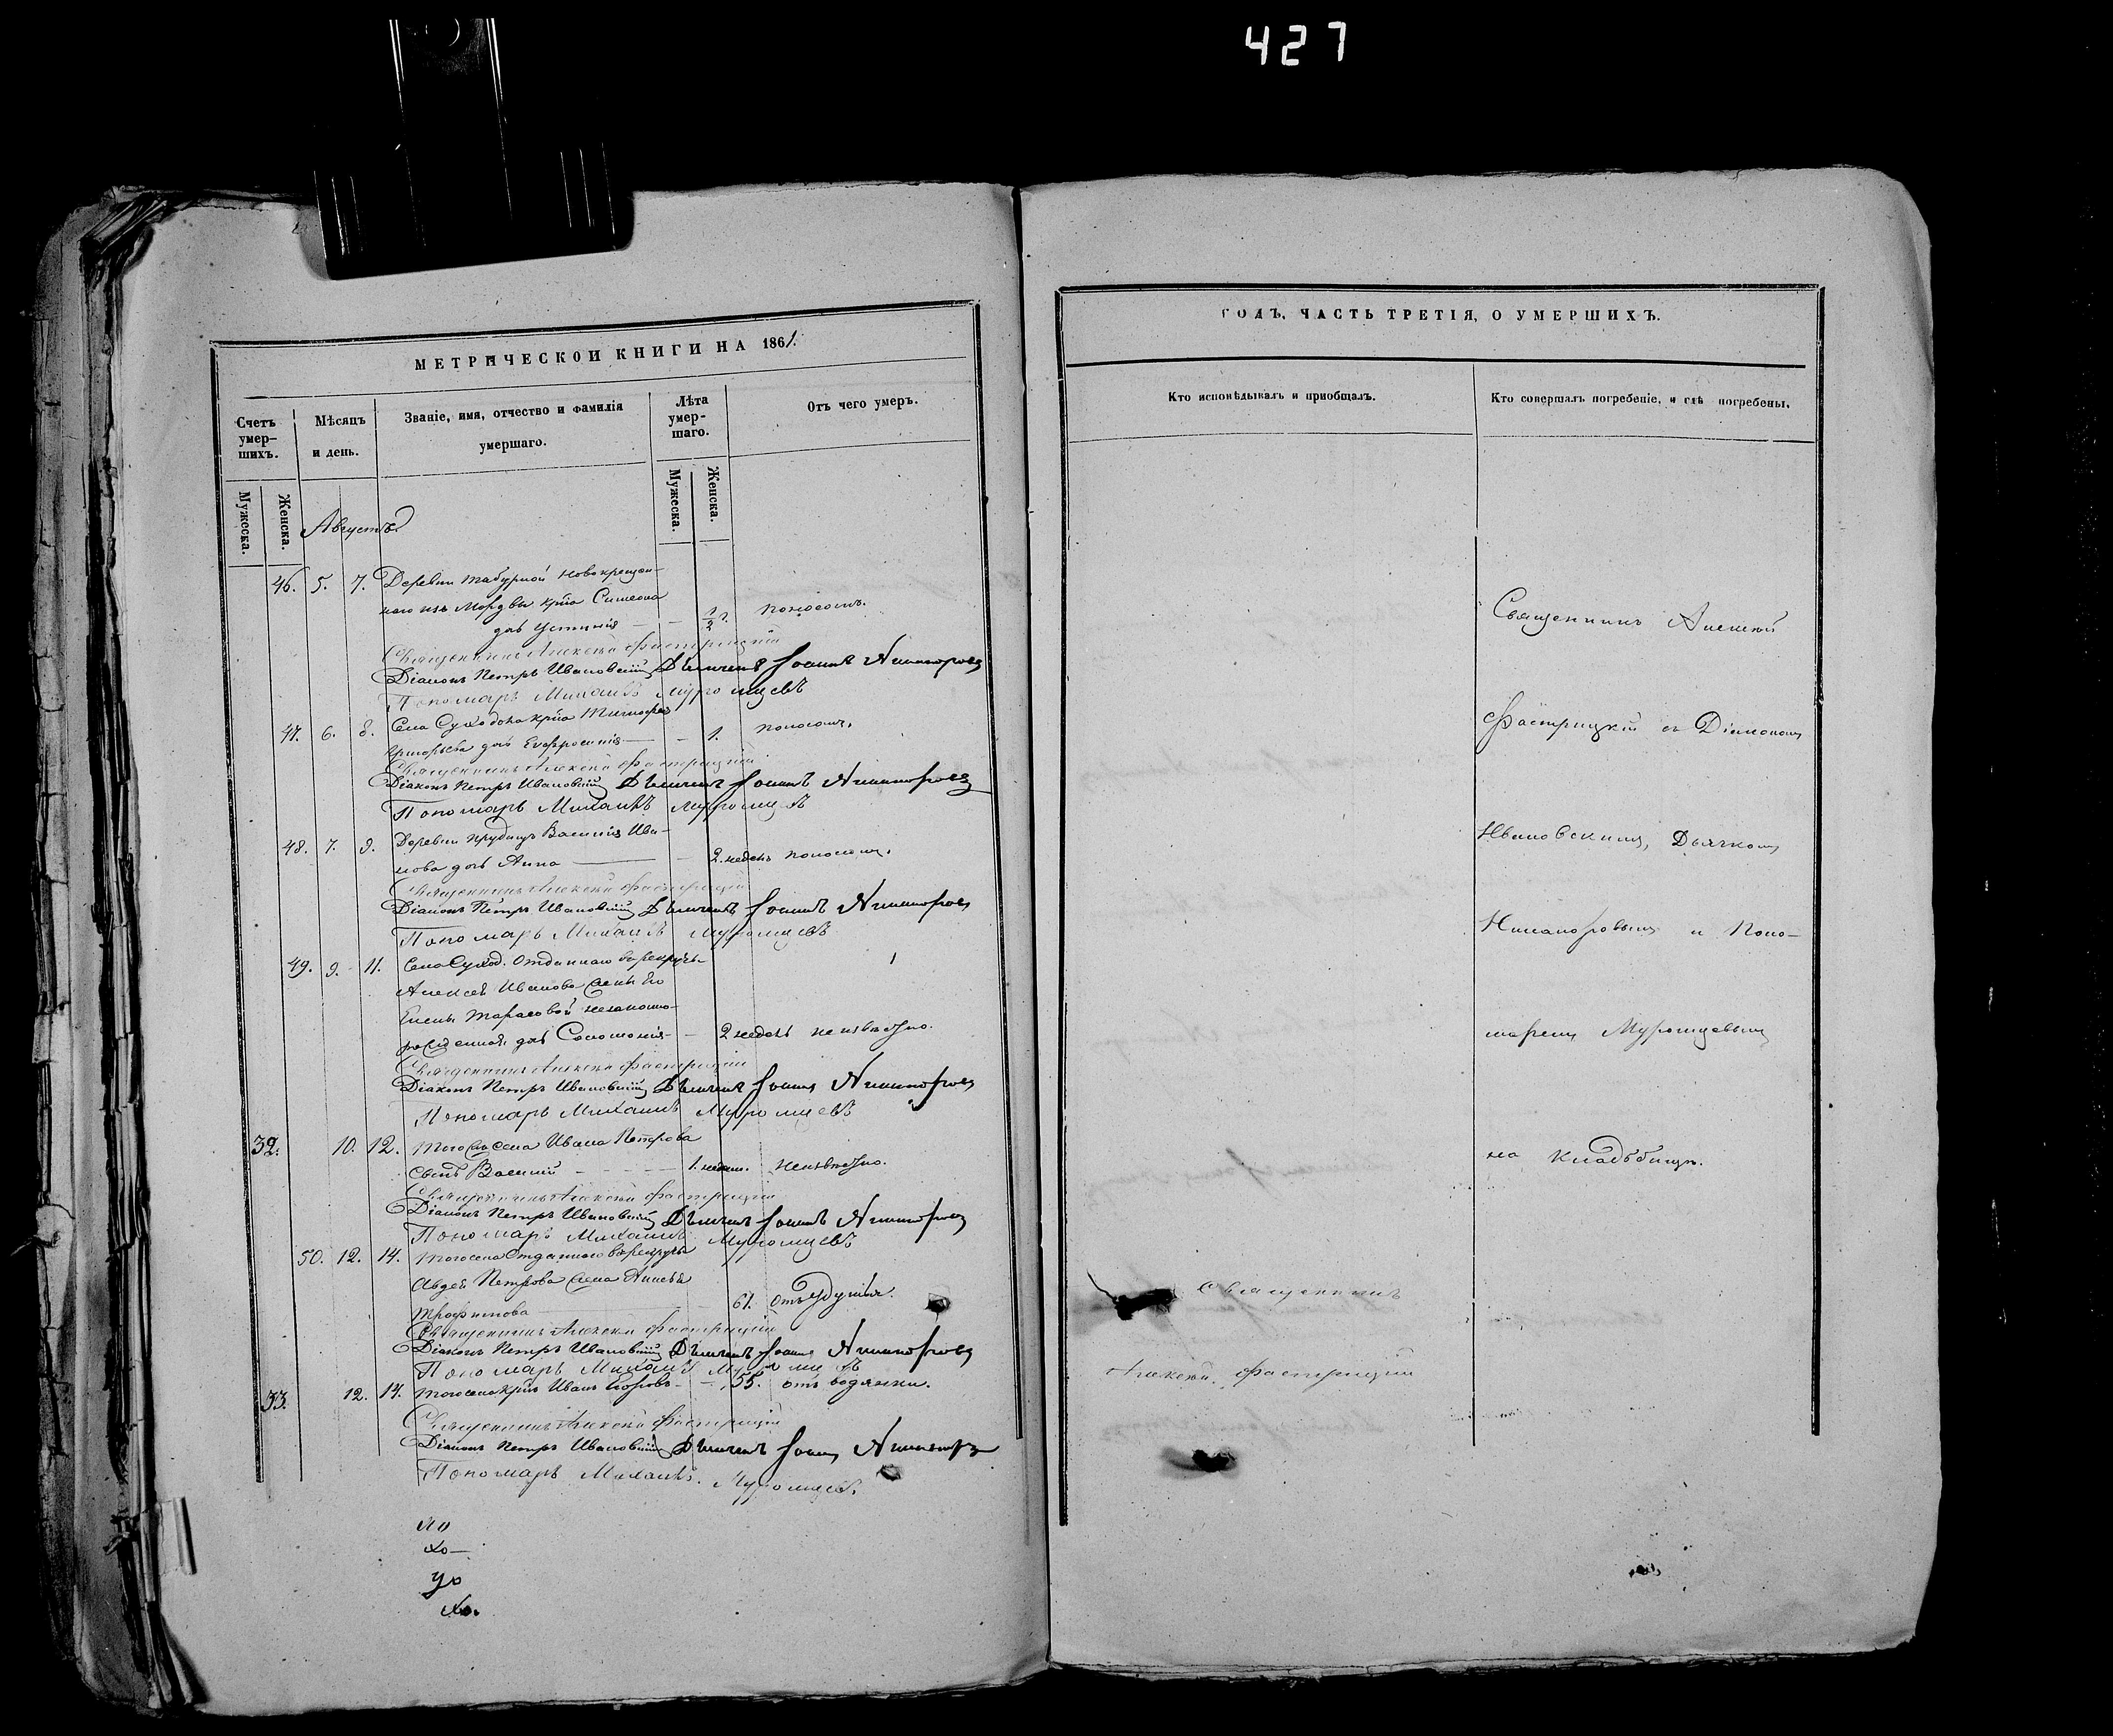 427
МЕТРИЧЕСКОЙ КНИГИ НА 1861.
Счетъ умер-шихъ.
Мѣсяцъ и день.
Званіе, имя, отчество и фамилія умершаго.
Лѣта умер-шаго.
Отъ чего умеръ.
Мужеска.
Женска.
Мужеска.
Женска.
Августъ
46. 5. 7. Деревни Табурной новокрещен-
наго изъ Мордвы крña Симеона
дочь Устинія — — 1/2 г. поносомъ.
Священникъ Алексѣй Фастрицкій
Діаконъ Петръ Ивановскій Дьячекъ Іоаннъ Никаноровъ
Пономарь Михаилъ Муромцевъ
47. 6. 8. Села Суходола крña Тимофея
Григорьева дочь Евфросинія — — 1. поносомъ.
Священникъ Алексѣй Фастрицкій
Діаконъ Петръ Ивановскій Дьячекъ Іоаннъ Никаноровъ
Пономарь Михаилъ Муромцевъ
48. 7. 9. Деревни Прудищъ Василія Ива-
нова дочь Анна — — 2. недель поносомъ.
Священникъ Алексѣй Фастрицкій
Діаконъ Петръ Ивановскій Дьячекъ Іоаннъ Никаноровъ
Пономарь Михаилъ Муромцевъ
49. 9. 11. Села Суход. отданнаго въ рекруты
Алексѣя Иванова жены его
Елены Тарасовой незаконно-
рожденная дочь Соломонія — 2 недель неизвѣстно.
Священникъ Алексѣй Фастрицкій
Діаконъ Петръ Ивановскій Дьячекъ Іоаннъ Никаноровъ
Пономарь Михаилъ Муромцевъ
32. 10. 12. Того же села Ивана Петрова
сынъ Василій — — 1. недели. неизвѣстно.
Священникъ Алексѣй Фастрицкій
Діаконъ Петръ Ивановскій Дьячекъ Іоаннъ Никаноровъ
Пономарь Михаилъ Муромцевъ
50. 12. 14. Того села отданнаго въ рекруты
Авдея Петрова жена
Трофимова — 61. отъ удушья.
Священникъ Алексѣй Фастрицкій
Діаконъ Петръ Ивановскій Дьячекъ Іоаннъ Никаноровъ
Пономарь Михаилъ Муромцевъ
33. 12. 14. Того села крña Иванъ Егоровъ — 55. отъ водянки.
Священникъ Алексѣй Фастрицкій
Діаконъ Петръ Ивановскій Дьячекъ Іоаннъ Никаноровъ
Пономарь Михаилъ Муромцевъ.
ГОДЪ, ЧАСТЬ ТРЕТІЯ, О УМЕРШИХЪ.
Кто исповѣдывалъ и пріобщалъ.
Кто совершалъ погребеніе, и гдѣ погребены.
Священникъ Алексѣй
Фастрицкій съ Діакономъ
Ивановскимъ, Дьячкомъ
Никаноровымъ и Поно-
маремъ Муромцевымъ
на кладбищѣ.
Священникъ
Алексѣй Фастрицкій